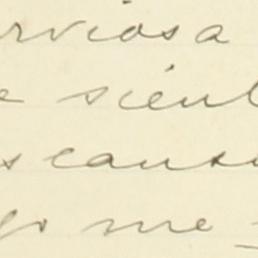 rviosa
e sient
scansa
go me